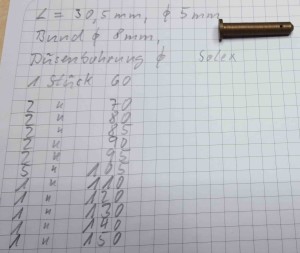 L = 30,5 mm, ϕ 5 mm
Bund ϕ 8 mm,
Düsenbohrung ϕ Solex
1 Stück 60
2 " 70
2 " 80
2 " 85
2 " 90
2 " 95
5 " 105
1 " 110
1 " 120
1 " 130
1 " 140
1 " 150